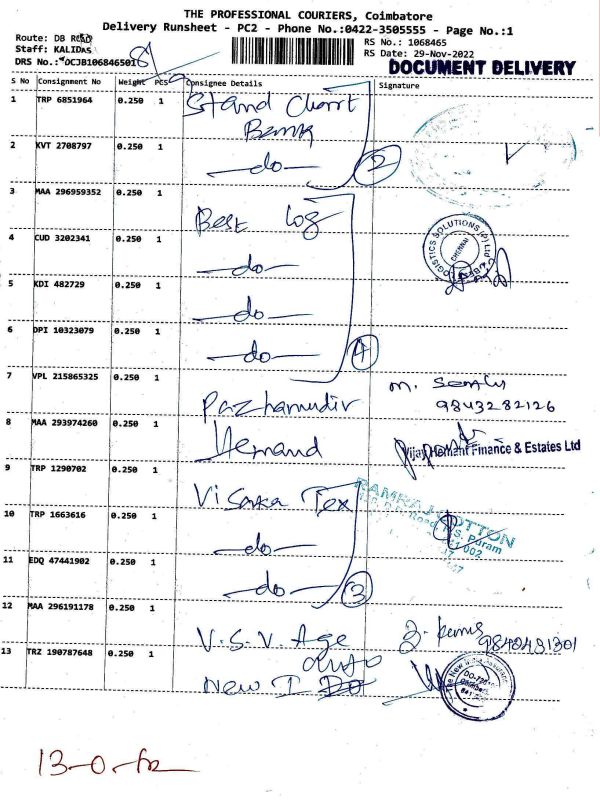 THE PROFESSIONAL COURIERS, Coimbatore
Delivery Runsheet - PC2 - Phone No.:0422-3505555 - Page No.:1
Route: DB Road
RS No.: 1068465
Staff: KALIDAS
RS Date: 29-Nov-2022
DRS No.: OCJB1068465018
DOCUMENT DELIVERY
S No Consignment No Weight PCS Consignee Details Signature
1 TRP 6851964 0.250 1 Stand Chart
Bank
2 KVT 2708797 0.250 1 —do— 2
3 MAA 296959352 0.250 1 Best Log
LOGISTICS SOLUTIONS (P) Ltd
CHENNAI
4 CUD 3202341 0.250 1 —do—
5 KDI 482729 0.250 1 —do—
6 DPI 10323079 0.250 1 —do— 4
7 VPL 215865325 0.250 1 Pazhamudir
9843282126
8 MAA 293974260 0.250 1 Hemand
Vijay Hemant Finance & Estates Ltd
9 TRP 1290702 0.250 1 Visaka Tex
COTTON
Road, R.S. Puram
10 TRP 1663616 0.250 1 —do—
11 EDQ 47441902 0.250 1 —do— 3
12 MAA 296191178 0.250 1 V.S.V. Age
9840491301
13 TRZ 190787648 0.250 1
New I
The New India Assurance
13-0-